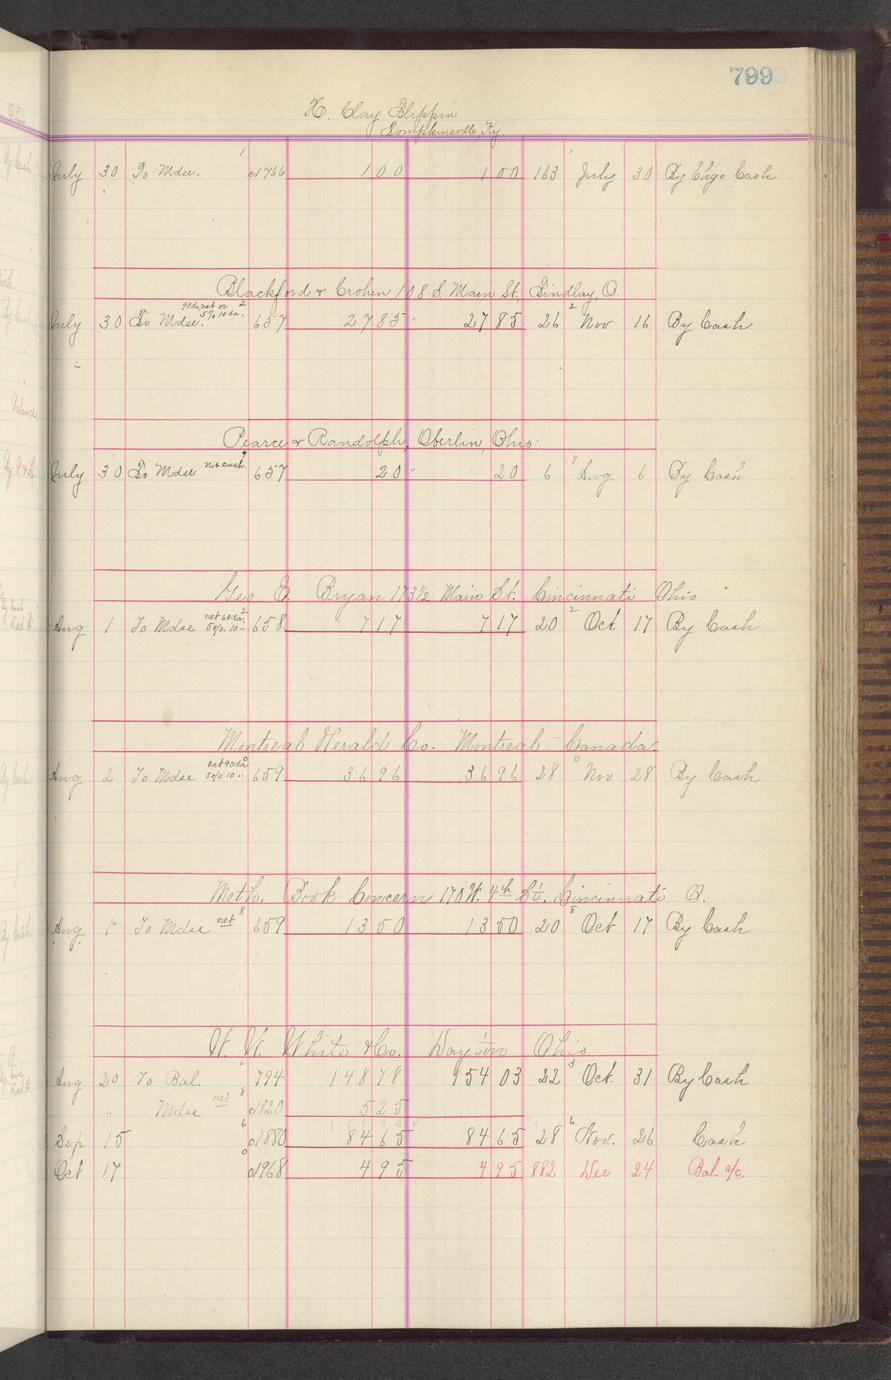 799
H. Clay Flippin
Tompkinsville, Ky.
July 30 To Mdse. 1 c1766 100 100 163 1 July 30 By Chgo Cash
Blackford & Crohen 108 S. Main St. Findlay, O.
90 da net or 2
5% 10 da.
July 30 To Mdse. 657 2785 2785 26 2 Nov 16 By Cash
Pearce & Randolph, Oberlin, Ohio.
July 30 To Mdse net cash 657 20 20 6 Aug 6 By Cash
Geo E Bryan 173 1/2 Main St. Cincinnati Ohio
net 60 da 2
Aug 1 To Mdse 5% 10 658 717 717 20 2 Oct 17 By Cash
Montreal Herald Co. Montreal - Canada.
net 90 da
Aug 2 To Mdse 5% 10 659 3696 3696 28 0 Nov 28 By Cash
Meth. Book Concern 170 W. 4th St. Cincinnati O.
Aug 1 To Mdse net 8 659 1350 1350 20 8 Oct 17 By Cash
W. W. White & Co. Dayton Ohio
Aug 20 To Bal. 794 14878 15403 22 3 Oct. 31 By Cash
" Mdse net 8 c1820 525
Sep 15 6 c1880 8465 8465 28 6 Nov. 26 Cash
Oct 17 0 c1968 495 495 882 Dec 24 Bal. a/c.